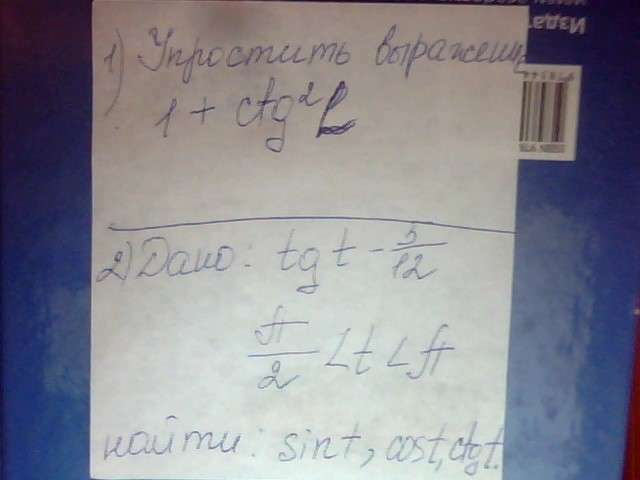 1) Упростить выражение
1 + ctg² L
2) Дано: tg t - 5/12
π/2 < t < π
найти: sint, cost, ctgt.
Издат